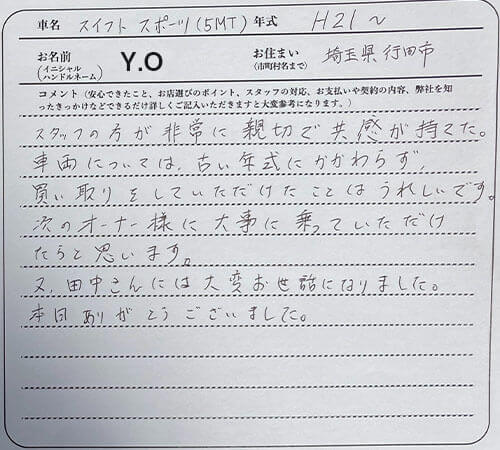 車名 スイフト スポーツ(5MT) 年式 H21~
お名前 (イニシャル ハンドルネーム) Y.O お住まい (市町村名まで) 埼玉県 行田市
コメント（安心できたこと、お店選びのポイント、スタッフの対応、お支払いや契約の内容、弊社を知
ったきっかけなどできるだけ詳しくご記入いただきますと大変参考になります。）
スタッフの方が非常に親切で共感が持てた。
車両については、古い年式にかかわらず、
買い取りをしていただけたことはうれしいです。
次のオーナー様に大事に乗っていただけ
たらと思います。
又、田中さんには大変お世話になりました。
本日ありがとうございました。